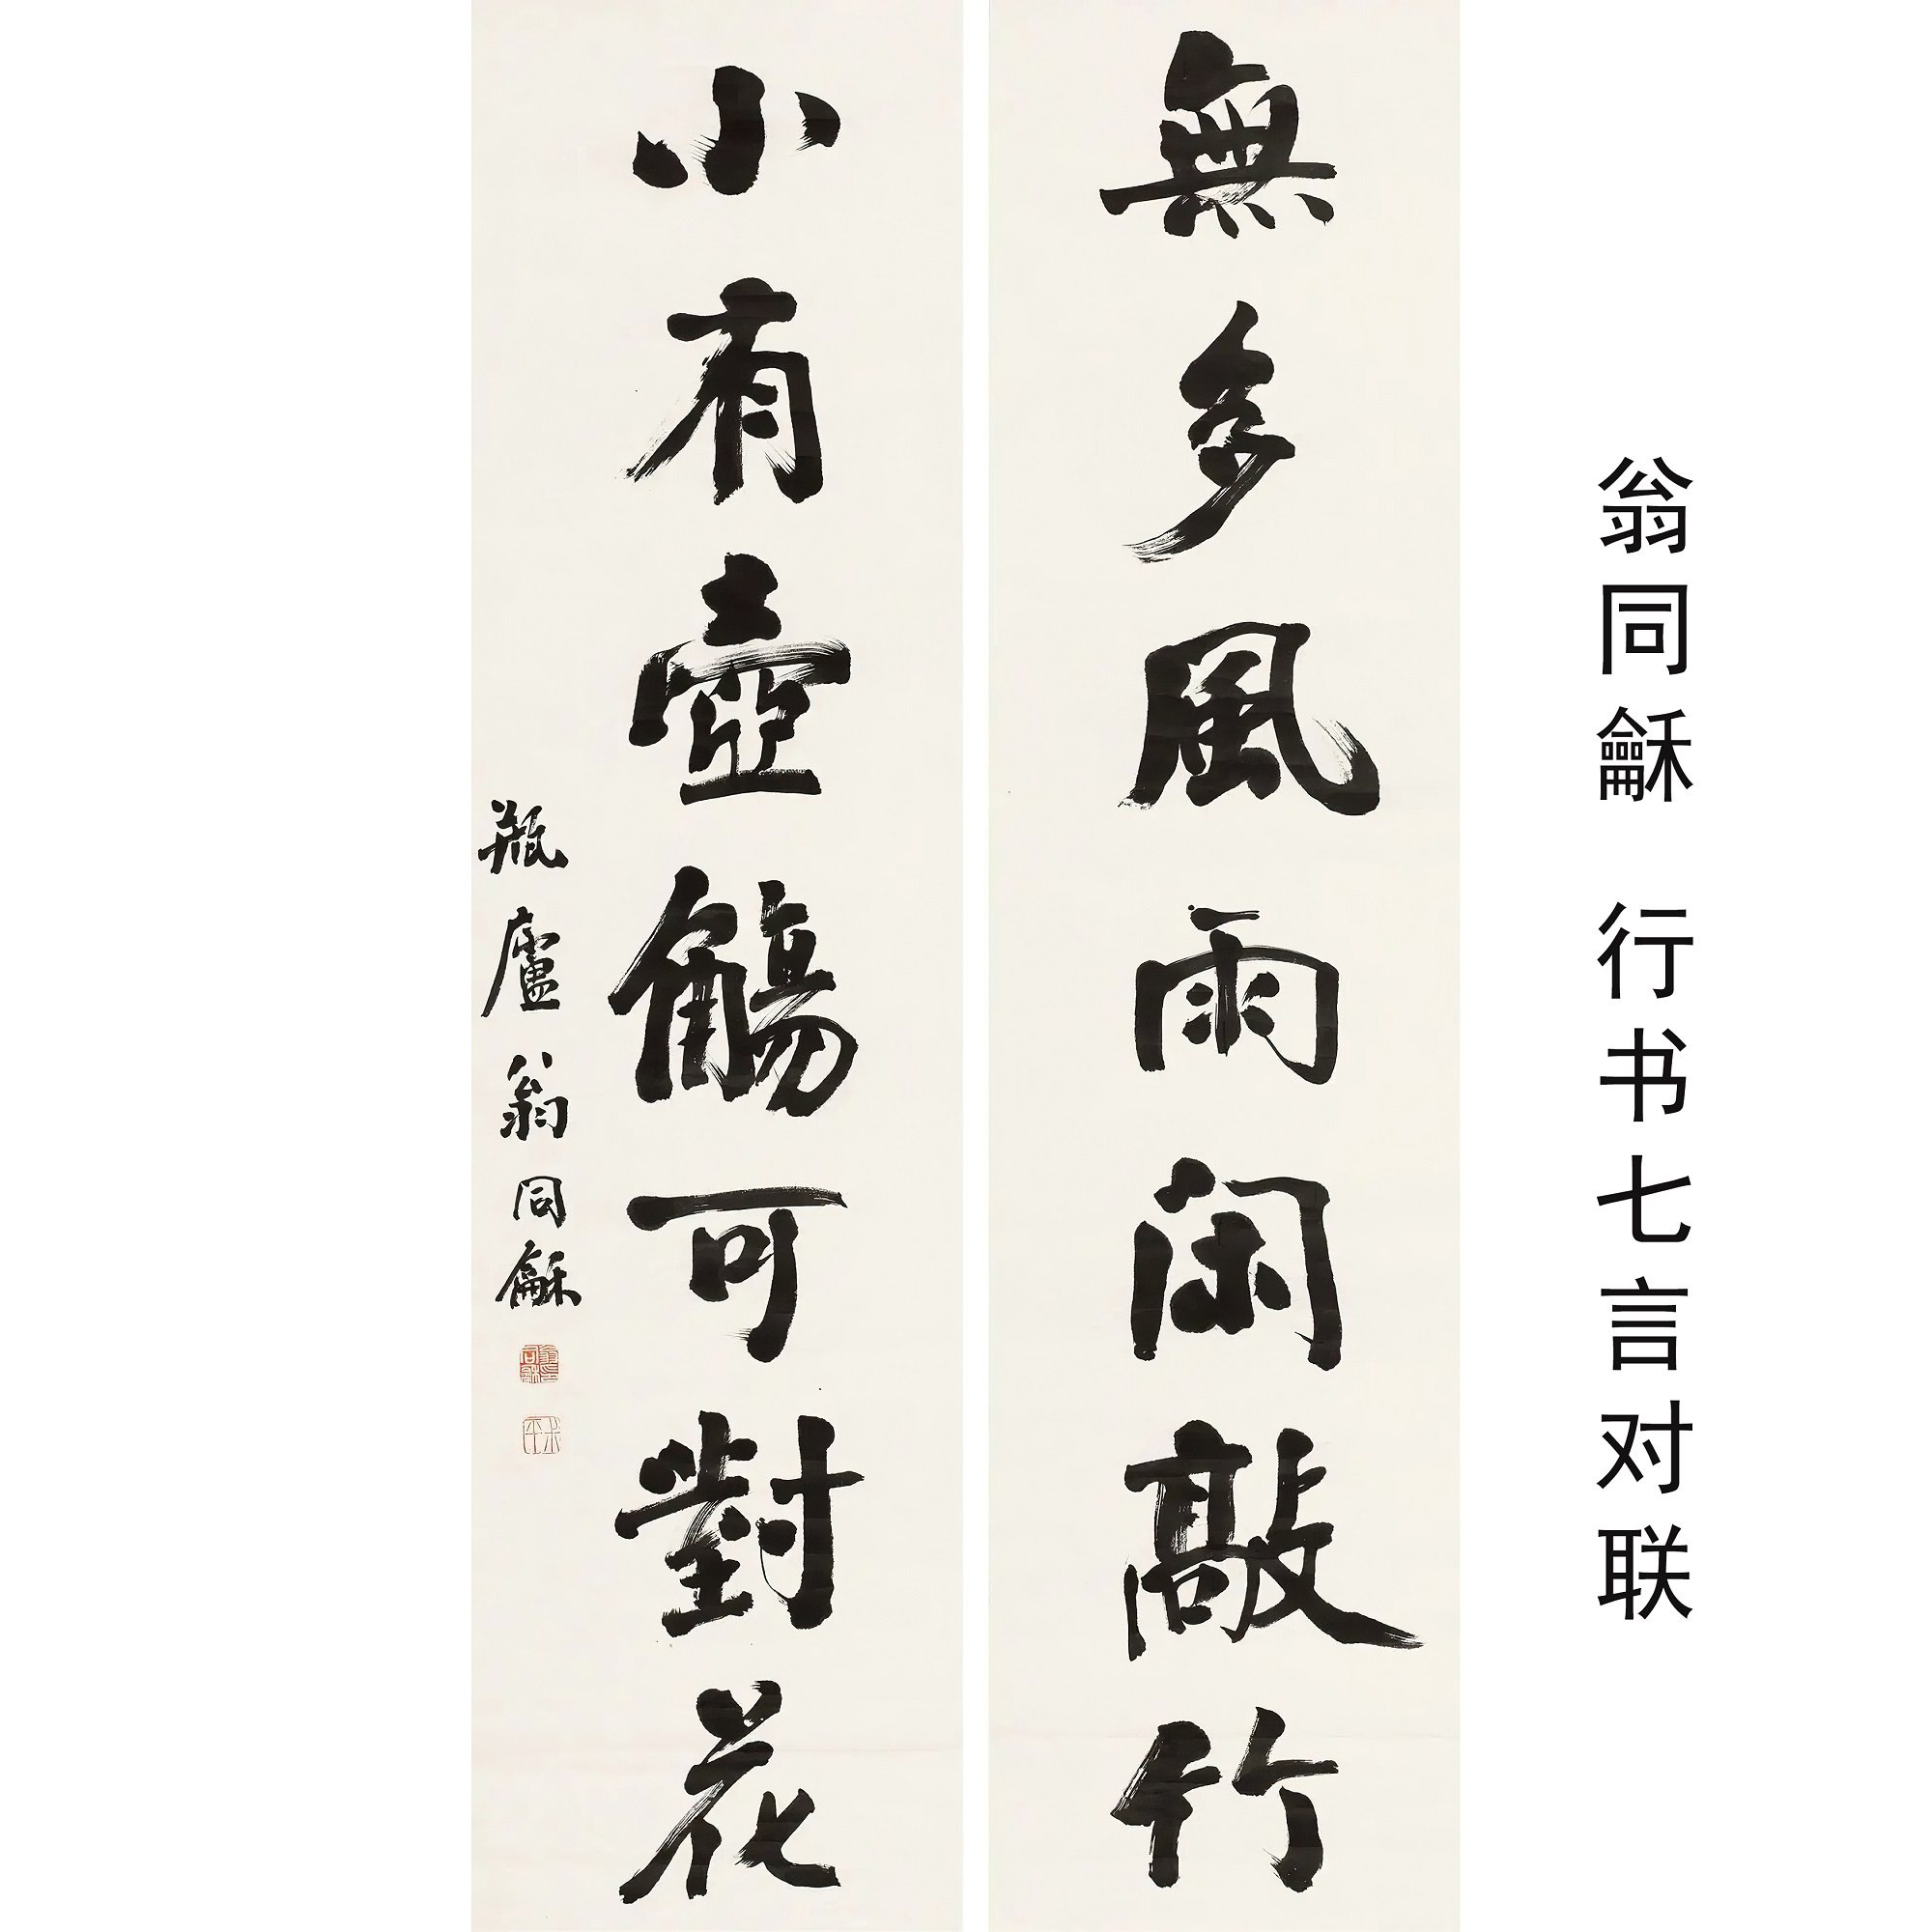 翁同龢 行书七言对联
無多風雨閑敲竹
小有壺觴可對花
瓶廬翁同龢